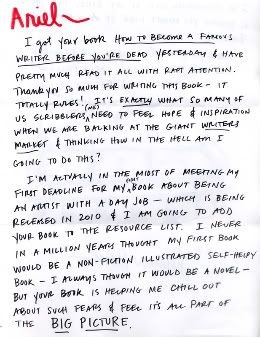 Ariel
I got your book HOW TO BECOME A FAMOUS
WRITER BEFORE YOU'RE DEAD YESTERDAY & HAVE
PRETTY MUCH READ IT ALL WITH RAPT ATTENTION.
THANK YOU SO MUCH FOR WRITING THIS BOOK - IT
TOTALLY RULES! IT'S EXACTLY WHAT SO MANY OF
US SCRIBBLERS (ME) NEED TO FEEL HOPE & INSPIRATION
WHEN WE ARE BALKING AT THE GIANT WRITERS
MARKET & THINKING HOW IN THE HELL AM I
GOING TO DO THIS?
I'M ACTUALLY IN THE MIDST OF MEETING MY
FIRST DEADLINE FOR MY FIRST BOOK ABOUT BEING
AN ARTIST WITH A DAY JOB - WHICH IS BEING
RELEASED IN 2010 & I AM GOING TO ADD
YOUR BOOK TO THE RESOURCE LIST. I NEVER
IN A MILLION YEARS THOUGHT MY FIRST BOOK
WOULD BE A NON-FICTION ILLUSTRATED SELF-HELPY
BOOK - I ALWAYS THOUGH IT WOULD BE A NOVEL -
BUT YOUR BOOK IS HELPING ME CHILL OUT
ABOUT SUCH FEARS & FEEL IT'S ALL PART OF
THE BIG PICTURE.